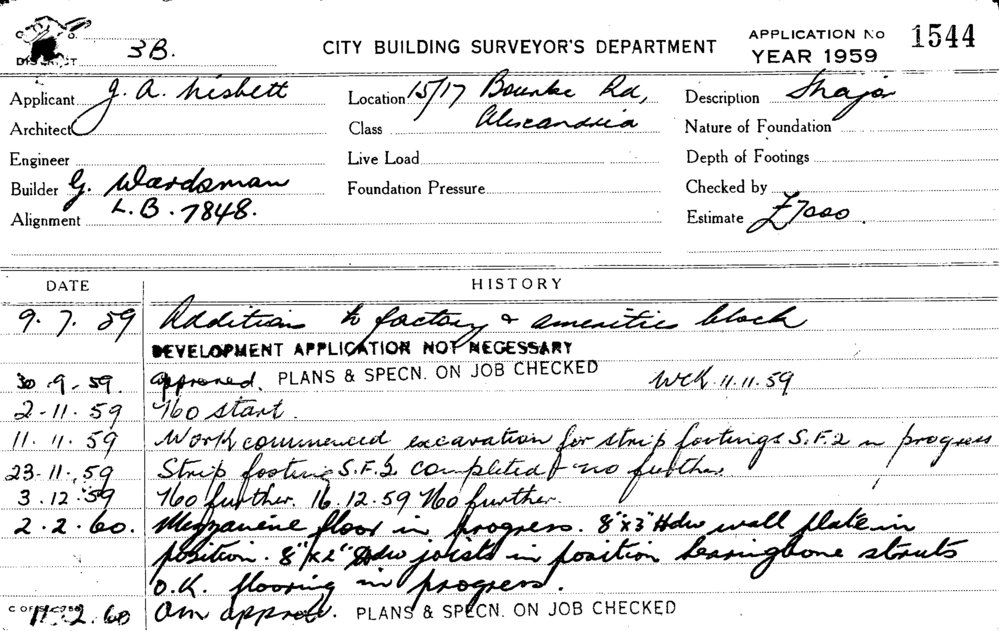 3B. CITY BUILDING SURVEYOR'S DEPARTMENT APPLICATION No 1544
DISTRICT YEAR 1959
Applicant J. A. Nisbett Location 15/17 Bourke Rd, Description Major
Architect Class Alexandria Nature of Foundation
Engineer Live Load Depth of Footings
Builder G. Wardsman Foundation Pressure Checked by
Alignment L.B. 7848. Estimate £7000.
DATE HISTORY
9.7.59 Additions to factory & amenities block
DEVELOPMENT APPLICATION NOT NECESSARY
30.9.59. approved. PLANS & SPECN. ON JOB CHECKED WCK. 11.11.59
2-11-59 No start.
11.11.59 Work commenced excavation for strip footings S.F.2 in progress
23-11-59 Strip footing S.F.2. completed no further
3.12.59 No further. 16.12.59 No further.
2.2.60. Mezzanine floor in progress. 8"x3" Hdw wall plate in
position. 8"x2" Hdw joists in position hearingbone struts
O.K. flooring in progress.
11.2.60 Am approv. PLANS & SPECN. ON JOB CHECKED